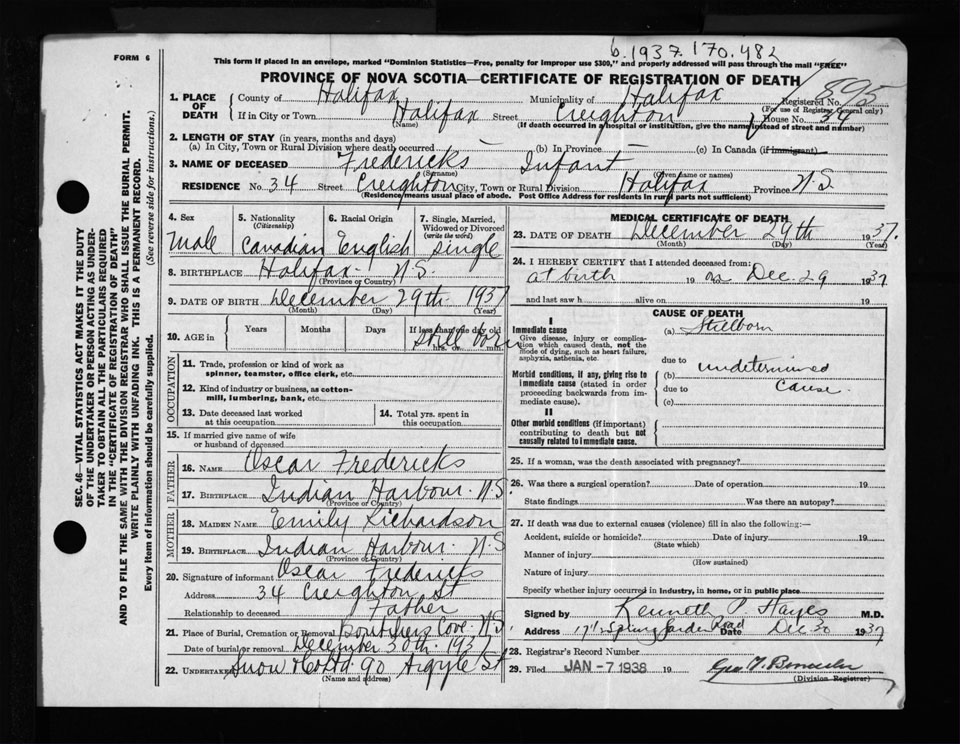 b.1937.170.482
FORM 6
This form if placed in an envelope, marked "Dominion Statistics—Free, penalty for improper use $300," and properly addressed will pass through the mail "FREE"
PROVINCE OF NOVA SCOTIA—CERTIFICATE OF REGISTRATION OF DEATH
1. PLACE OF DEATH
County of Halifax Municipality of Halifax Registered No. 895
(For use of Registrar General only)
If in City or Town Halifax Street Creighton House No. 34
(Name) (If death occurred in a hospital or institution, give the name instead of street and number)
2. LENGTH OF STAY (in years, months and days)
(a) In City, Town or Rural Division where death occurred (b) In Province (c) In Canada (if immigrant)
3. NAME OF DECEASED Fredericks Infant
(Surname) (Given name or names)
RESIDENCE No. 34 Street Creighton City, Town or Rural Division Halifax Province N.S.
(Residence means usual place of abode. Post Office Address for residents in rural parts not sufficient)
4. Sex
Male
5. Nationality
(Citizenship)
Canadian
6. Racial Origin
English
7. Single, Married, Widowed or Divorced
(write the word)
Single
8. BIRTHPLACE Halifax - N.S.
(Province or Country)
9. DATE OF BIRTH December 29th 1937
(Month) (Day) (Year)
10. AGE in Years Months Days If less than one day old
hrs. or min.
Still born
OCCUPATION
11. Trade, profession or kind of work as spinner, teamster, office clerk, etc.
12. Kind of industry or business, as cotton-mill, lumbering, bank, etc.
13. Date deceased last worked at this occupation
14. Total yrs. spent in this occupation
15. If married give name of wife or husband of deceased
FATHER
16. NAME Oscar Fredericks
17. BIRTHPLACE Indian Harbour. N.S.
(Province or Country)
MOTHER
18. MAIDEN NAME Emily Richardson
19. BIRTHPLACE Indian Harbour. N.S
(Province or Country)
20. Signature of informant Oscar Fredericks
Address 34 Creighton St
Relationship to deceased Father
21. Place of Burial, Cremation or Removal Boutiliers Cove. N.S.
Date of burial or removal December 30th. 1937
22. Undertaker Snow & Co Ltd. 90 Argyle St
(Name and address)
MEDICAL CERTIFICATE OF DEATH
23. DATE OF DEATH December 29th 1937.
(Month) (Day) (Year)
24. I HEREBY CERTIFY that I attended deceased from:
at birth 19 on Dec. 29 1937
and last saw h alive on 19
CAUSE OF DEATH
I
Immediate cause
Give disease, injury or complication which caused death, not the mode of dying, such as heart failure, asphyxia, asthenia, etc.
(a) Stillborn
due to
Morbid conditions, if any, giving rise to immediate cause (stated in order proceeding backwards from immediate cause).
(b) undetermined
due to cause.
(c)
II
Other morbid conditions (if important) contributing to death but not causally related to immediate cause.
25. If a woman, was the death associated with pregnancy?
26. Was there a surgical operation? Date of operation 19
State findings Was there an autopsy?
27. If death was due to external causes (violence) fill in also the following:—
Accident, suicide or homicide? Date of injury 19
(State which)
Manner of injury
(How sustained)
Nature of injury
Specify whether injury occurred in industry, in home, or in public place
Signed by Kenneth P. Hayes M.D.
Address 17½ Spring Garden Road Date Dec 30 1937
28. Registrar's Record Number
29. Filed JAN -7 1938 19
(Division Registrar)
SEC. 46—VITAL STATISTICS ACT MAKES IT THE DUTY
OF THE UNDERTAKER OR PERSON ACTING AS UNDERTAKER
TO OBTAIN ALL THE PARTICULARS REQUIRED
IN THE "CERTIFICATE OF REGISTRATION OF DEATH"
AND TO FILE THE SAME WITH THE DIVISION REGISTRAR WHO SHALL ISSUE THE BURIAL PERMIT.
WRITE PLAINLY WITH UNFADING INK. THIS IS A PERMANENT RECORD.
Every item of information should be carefully supplied. (See reverse side for instructions.)